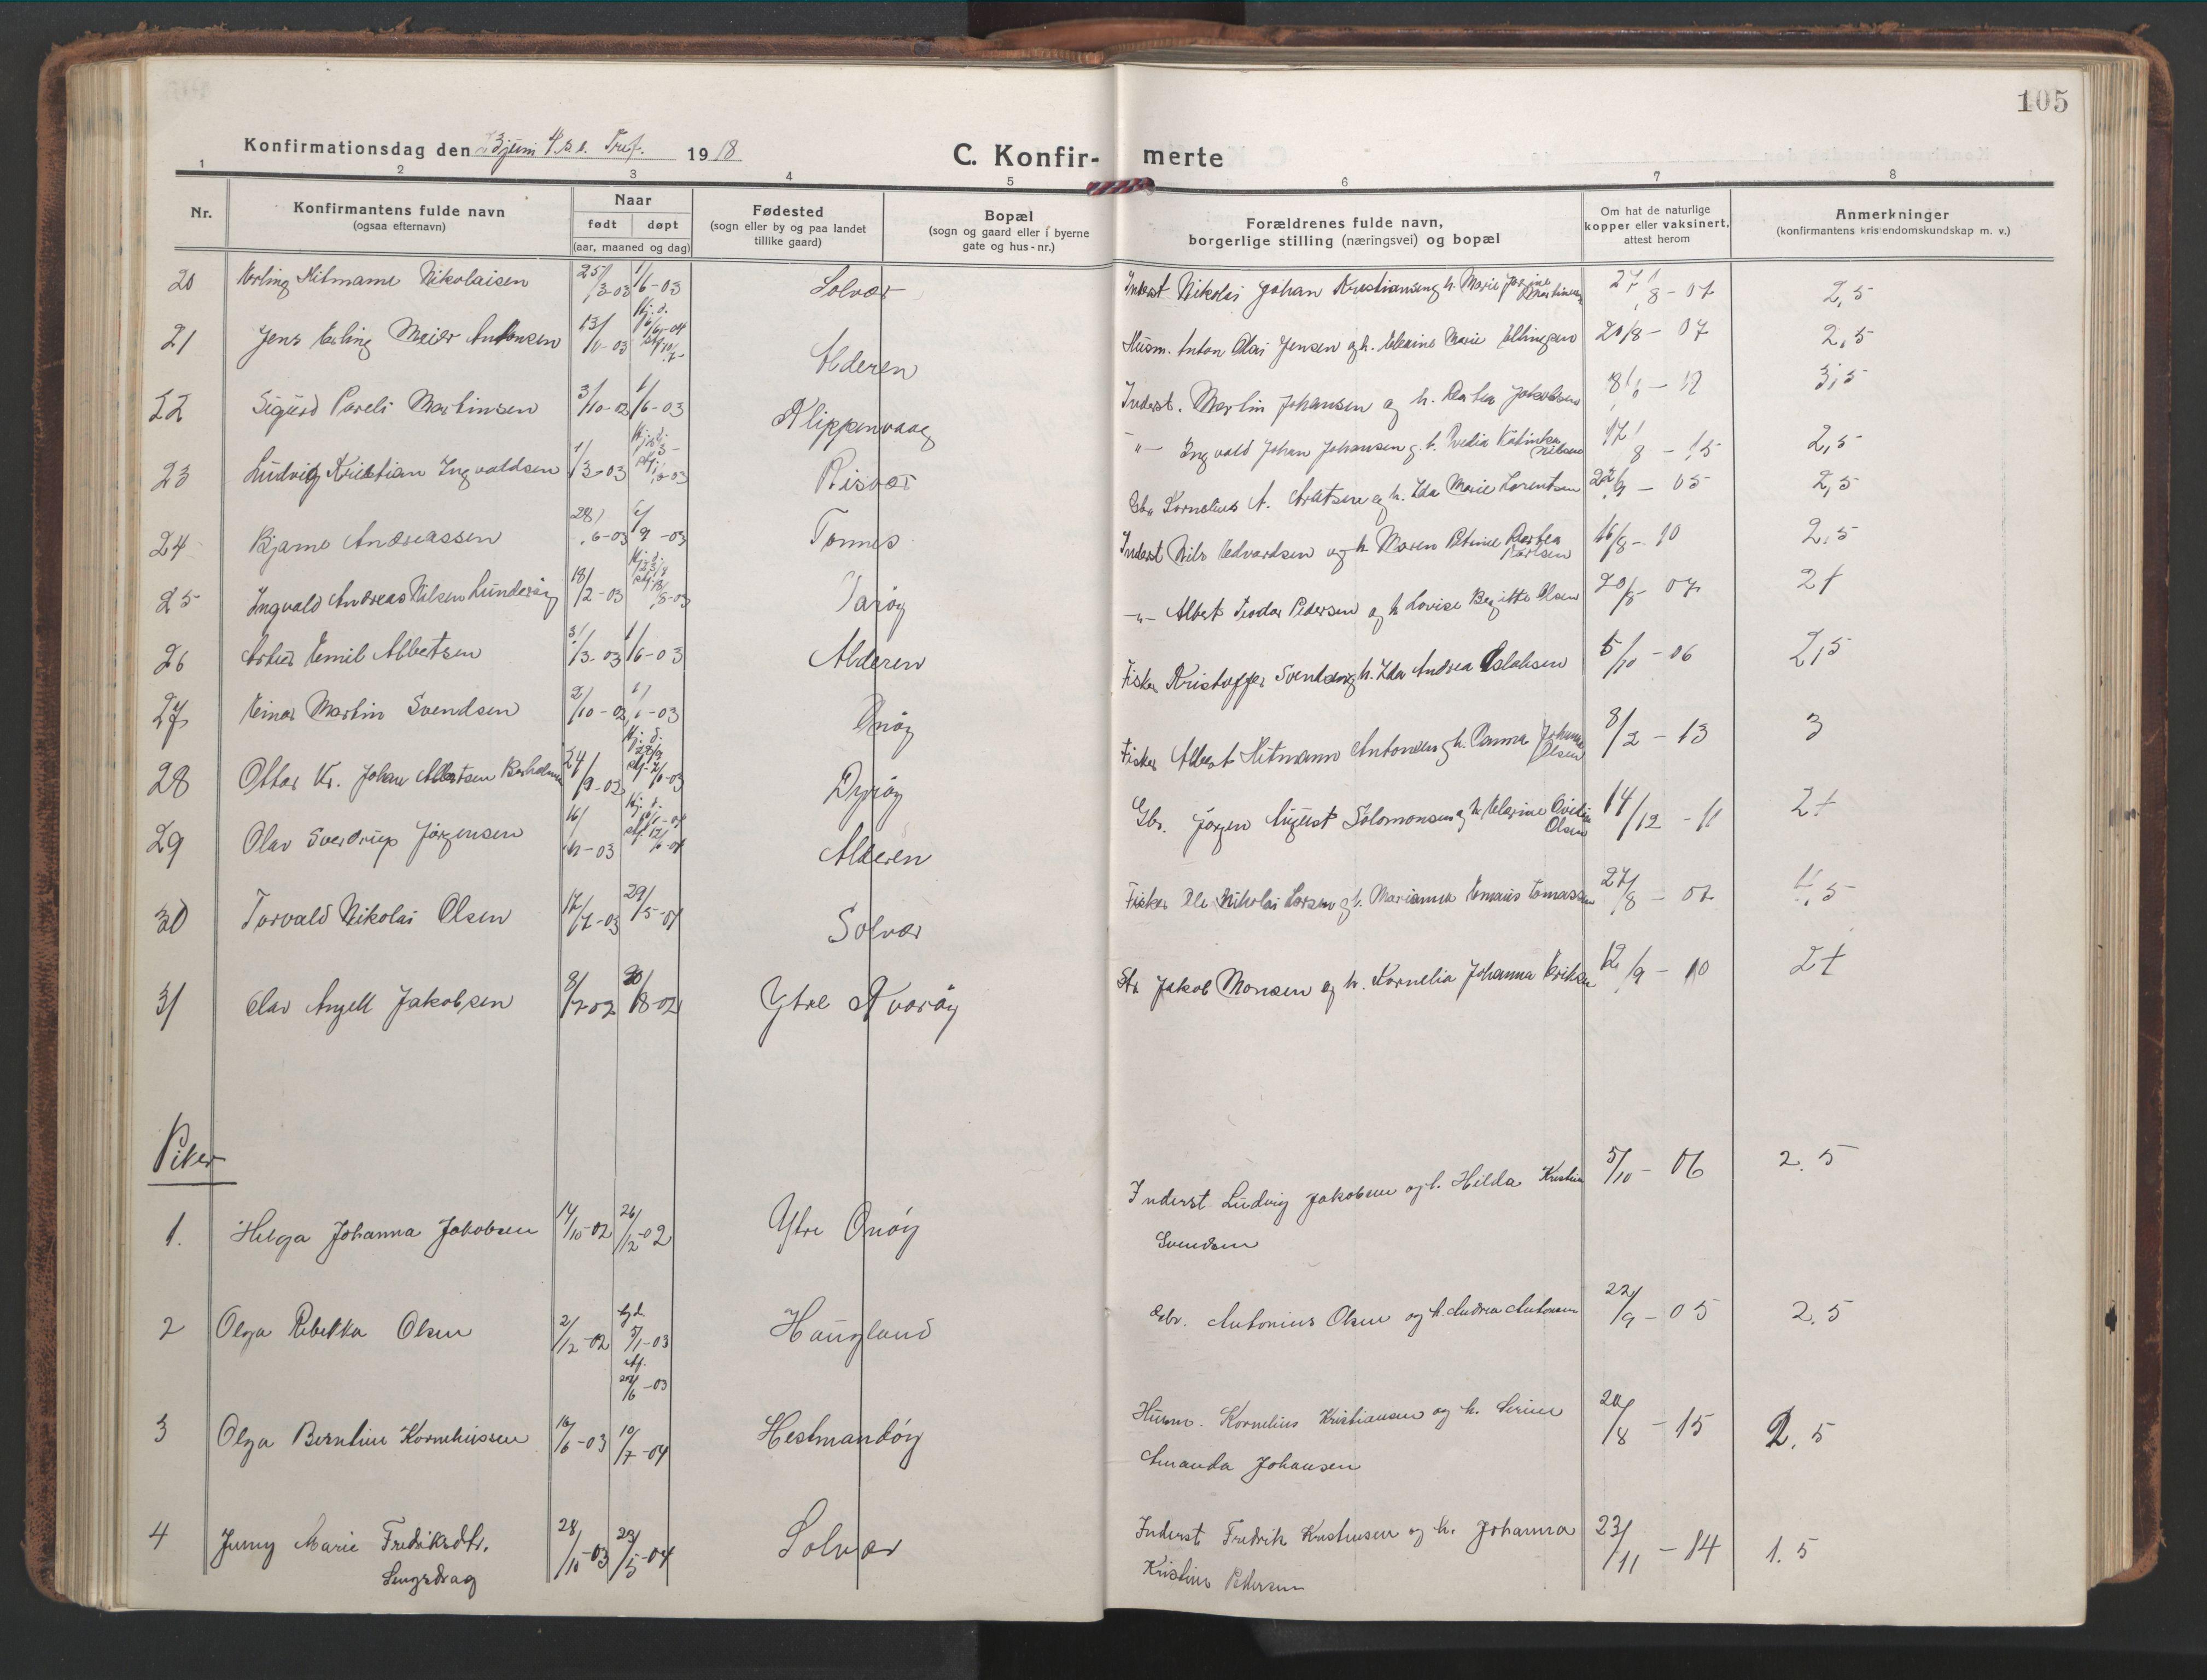 105
Konfirmationsdag den 23 juni 4. s. e. Tref. 1918
C. Konfir- merte
1 2 3 4 5 6 7 8
Nr.
Konfirmantens fulde navn
(ogsaa efternavn)
Naar
født døpt
(aar, maaned og dag)
Fødested
(sogn eller by og paa landet
tillike gaard)
Bopæl
(sogn og gaard eller i byerne
gate og hus-nr.)
Forældrenes fulde navn,
borgerlige stilling (næringsvei) og bopæl
Om hat de naturlige
kopper eller vaksinert,
attest herom
Anmerkninger
(konfirmantens kristendomskundskap m. v.)
20 Erling Hitmann Nikolaisen 25/3-03 1/6-03 Solvær Inderst Nikolai Johan Kristiansen og h. Marie 27/8-07 2,5
21 Jens Erling Meier Antonsen 13/11-03 Hj. d. Alderen Husm. Anton Olai Jensen og h. Elerine Marie Ellingsen 20/8-07 2,5
22 Sigurd Pareli Martinsen 3/10-02 1/6-03 Klippenvaag Inderst. Martin Johansen og h. Jakobsen 3,5
23 Ludvig Kristian Ingvaldsen 1/3-03 Hj. d. Risvær -"- Ingvald Johan Johansen og h. Katinka Nilsen 17/8-15 2,5
24 Bjarne Andreassen 28/6-03 6/9-03 Tonnes Gbr. Kornelius A. og h. Ida Marie Lorentsen 22/9-05 2,5
25 Ingvald Andreas Nilsen Lundersøy 18/2-03 Hj. d. Varøy Inderst Nils Edvardsen og h. Maren Petrine Karlsen 16/8-10 2,5
26 Artur Emil Albertsen 31/3-03 1/6-03 Alderen -"- Albert Teodor Pedersen og h. Lovise Begitte Olsen 20/8-07 2+
27 Einar Martin Svendsen 2/10-02 -03 Onøy Fisker Kristoffer Svendsen og h. Ida Andrea 5/10-06 2,5
28 Ottar Kr. Johan Albertsen 24/9-02 Hj. d. Dyrøy Fisker Albert Hitmann Antonsen og h. Johanne Olsen 8/2-13 3
29 Olav Sverdrup Jørgensen 16/11-03 Hj. d. Alderen Gbr. Jørgen August Solomonsen og h. Elerine Olsen 14/12-11 2+
30 Torvald Nikolai Olsen 17/7-03 29/5-04 Solvær Fisker Ole Nikolai Larsen og h. Marianna Tomassen 27/8-07 ,5
31 Olav Angell Jakobsen 8/7-02 /8-02 Ytre Kvarøy Jakob Monsen og h. Kornelia Johanna Eriksen 12/9-10 2+
Piker
1. Helga Johanna Jakobsen 14/10-02 26/12-02 Ytre Onøy Inderst Ludvig Jakobsen og h. Hilda Kristine 5/10-06 2.5
Svendsen
2 Olga Rebekka Olsen 2/12-02 hj. d. 5/1-03 Haugland Gbr. Antonius Olsen og h. Andrea Antonsen 22/9-05 2.5
3 Olga Berntine Korneliussen 16/6-03 10/7-04 Hestmandøy Husm. Kornelius Kristiansen og h. Serine 20/8-15 2.5
Amanda Johansen
4 Jenny Marie Fredriksdtr. 28/10-03 23/5-04 Solvær Inderst Fredrik Kristensen og h. Johanna 23/11-14 1.5
Lengsdrag Kristine Pedersen